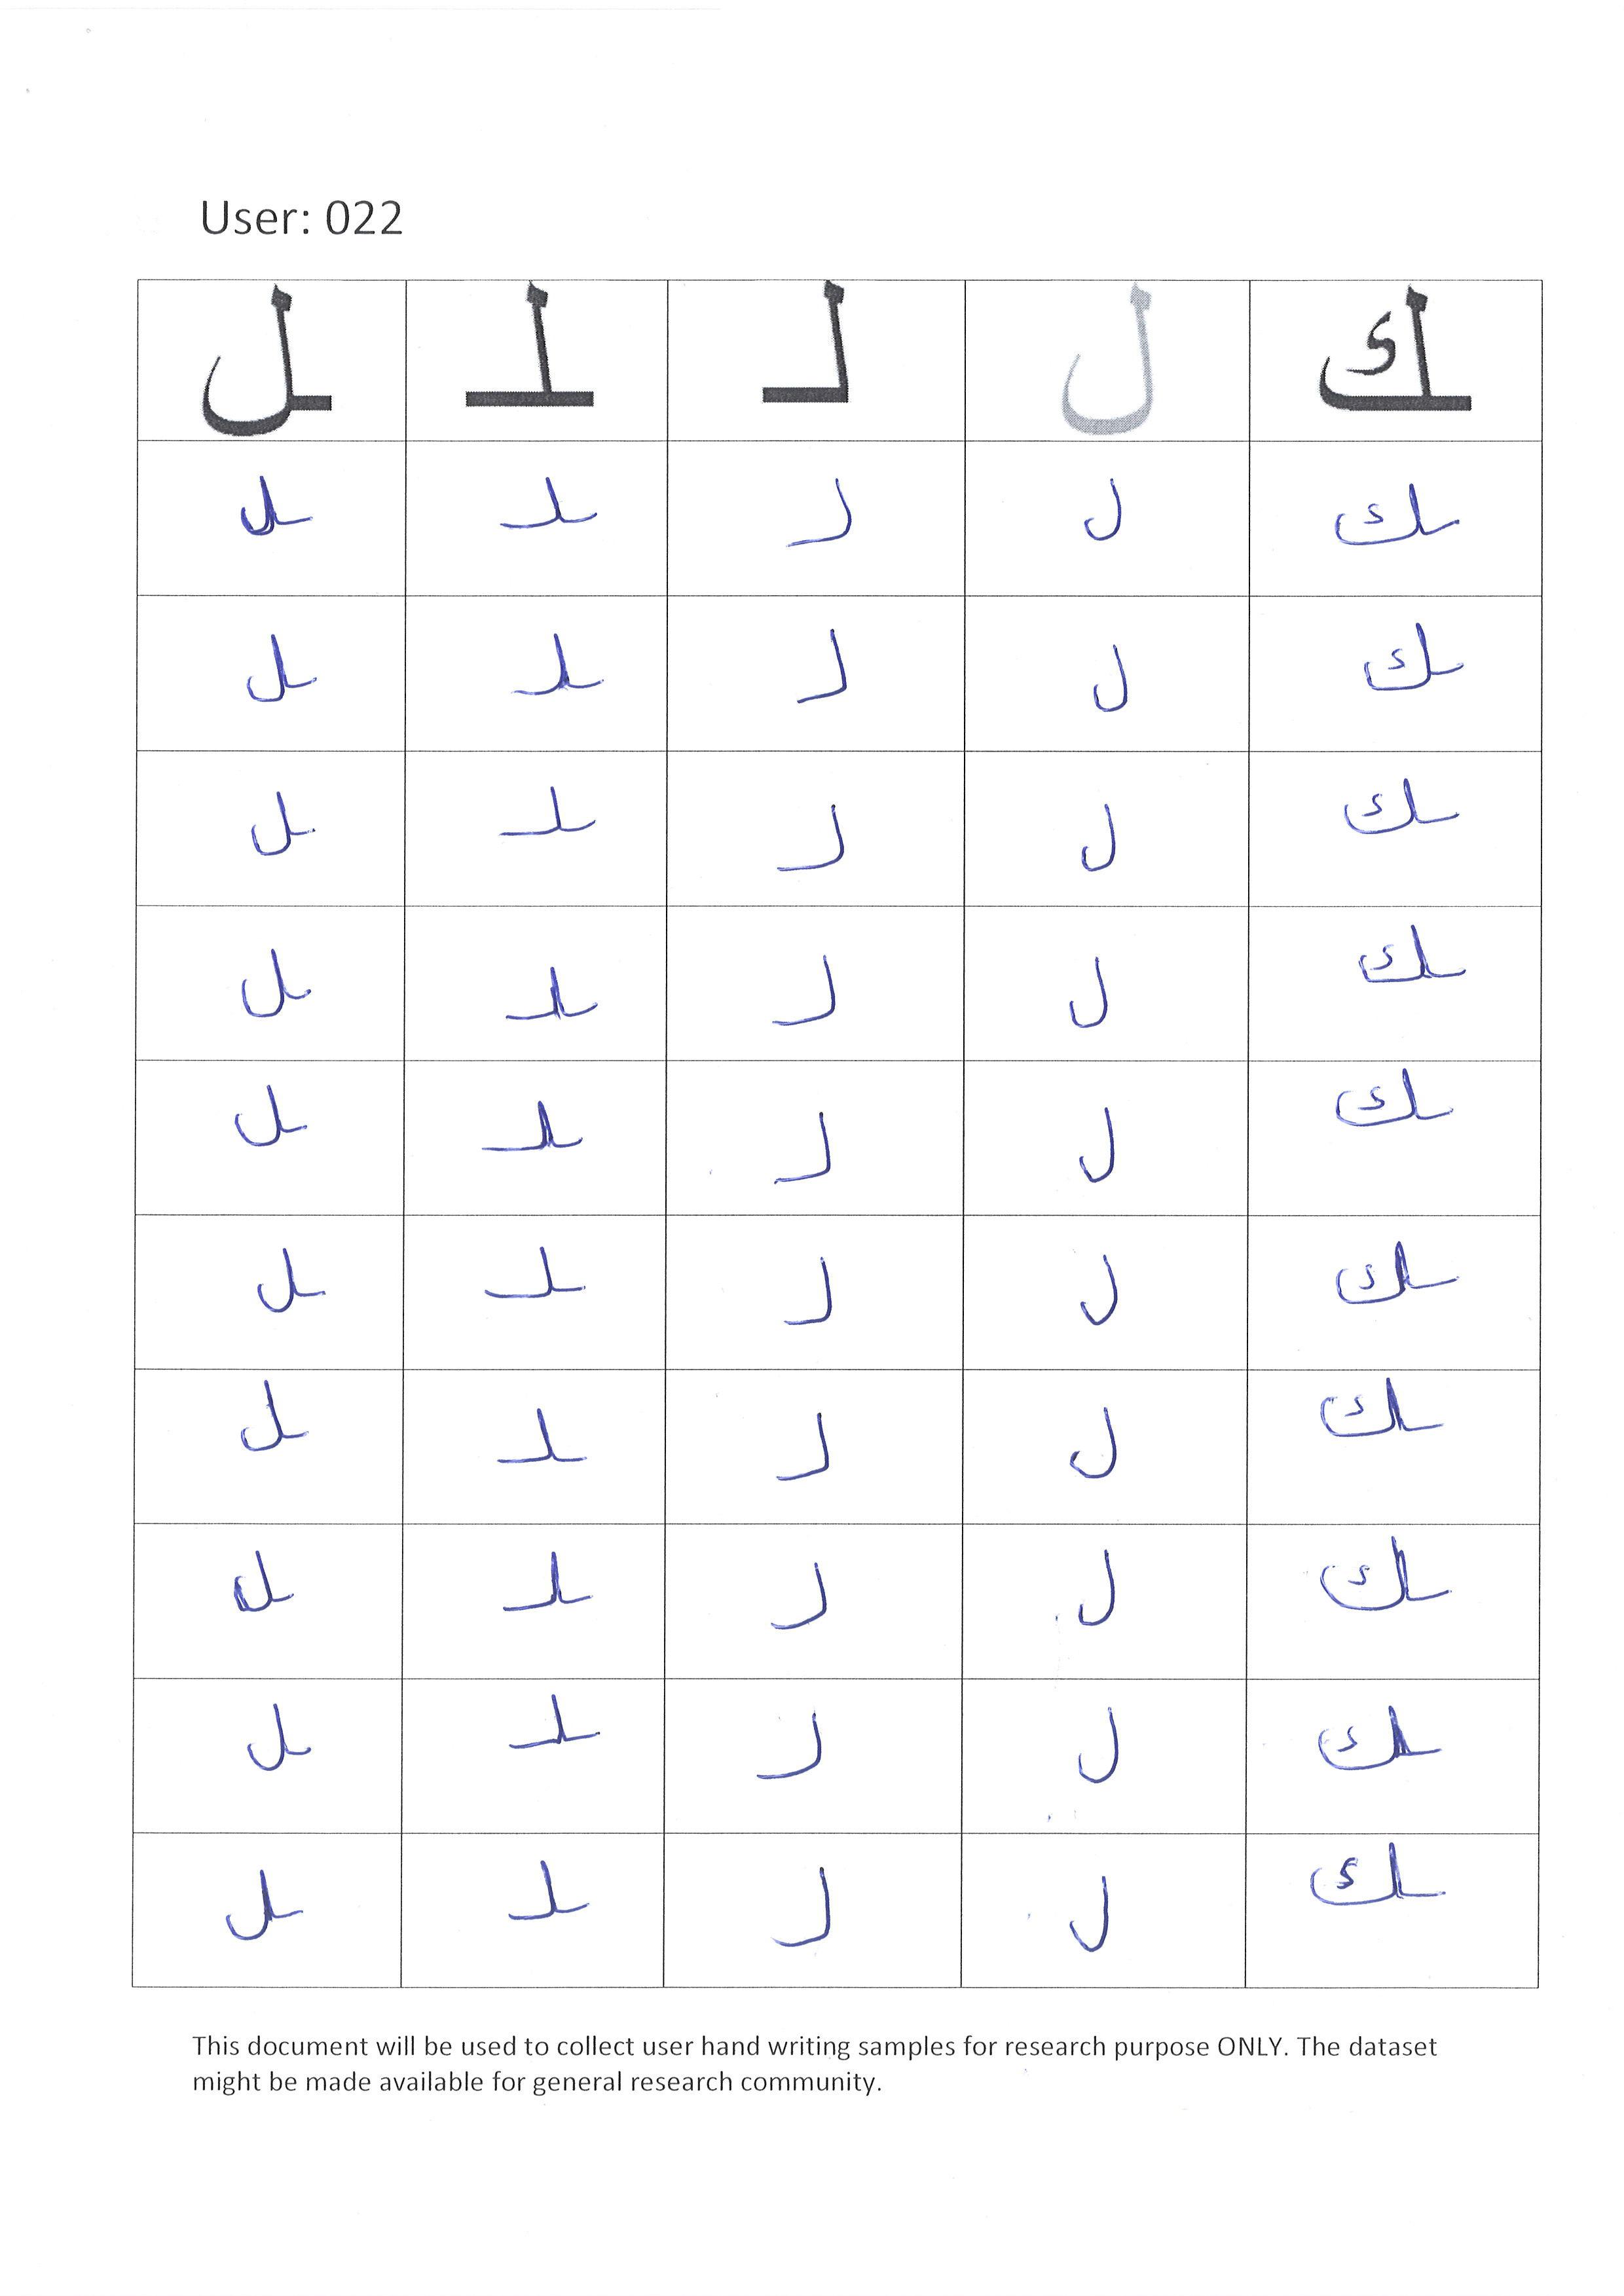 User: 022
ك ل لـ ـلـ ـل
ك ل لـ ـلـ ـل
ك ل لـ ـلـ ـل
ك ل لـ ـلـ ـل
ك ل لـ ـلـ ـل
ك ل لـ ـلـ ـل
ك ل لـ ـلـ ـل
ك ل لـ ـلـ ـل
ك ل لـ ـلـ ـل
ك ل لـ ـلـ ـل
ك ل لـ ـلـ ـل
This document will be used to collect user hand writing samples for research purpose ONLY. The dataset
might be made available for general research community.